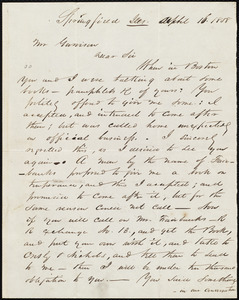 Springfield Dec. 16 1858
Mr Garrison
Dear Sir
When in Boston
you and I were talking about some
books - pamphlets &c of yours? You
politely offered to give me some; I
accepted, and intended to come after
them; but was called home unexpectedly
on official business. I sincerely
regretted this, as I desired to see you
again. A man by the name of
proposed to give me a book on
temperance, and this I accepted; and
promised to come after it, but for the
same reason could not call. Now
if you will call on Mr.
Exchange No. 18, and get the Book,
and put your own with it, and take to
Crosby & Nichols, and tell them to send
to me - then I will be under ten thousand
obligations to you -. You